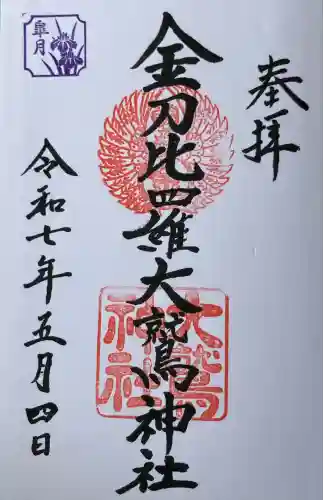 奉拝
金刀比羅大鷲神社
大鷲
神社
令和七年五月四日
皐月